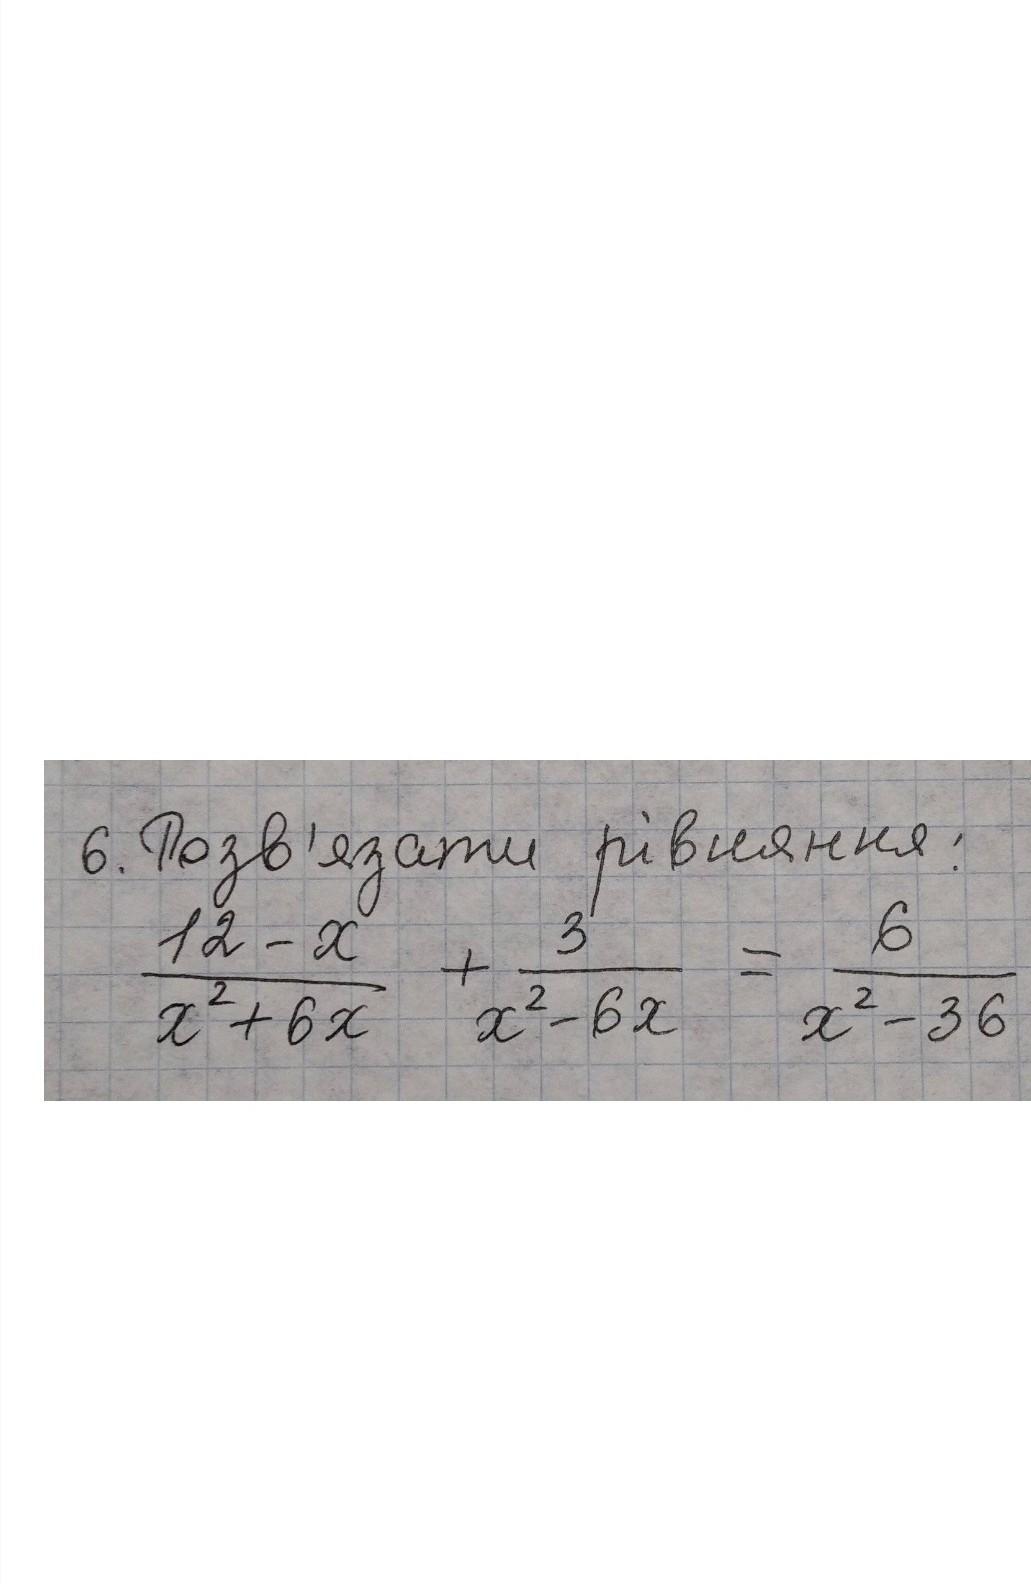 6. Розв'язати рівняння:
12 - x / x² + 6x + 3 / x² - 6x = 6 / x² - 36